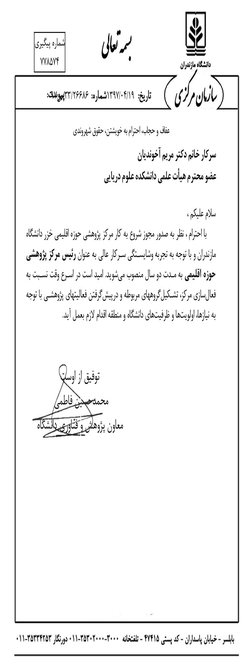 شماره پیگیری
۷۷۸۵۷۴
بسمه تعالی
دانشگاه مازندران
سازمان مرکزی
تاریخ: ۱۳۹۷/۰۴/۱۹ شماره: ۳۳/۲۶۶۸۶ پیوست:
عفاف و حجاب، احترام به خویشتن، حقوق شهروندی
سرکار خانم دکتر مریم آخوندیان
عضو محترم هیأت علمی دانشکده علوم دریایی
سلام علیکم ،
با احترام ، نظر به صدور مجوز شروع به کار مرکز پژوهشی حوزه اقلیمی خزر دانشگاه
مازندران و با توجه به تجربه وشایستگی سرکار عالی به عنوان رئیس مرکز پژوهشی
حوزه اقلیمی به مدت دو سال منصوب می‌شوید. امید است در اسرع وقت نسبت به
فعال‌سازی مرکز، تشکیل گروههای مربوطه و درپیش‌گرفتن فعالیتهای پژوهشی با توجه
به نیازها، اولویت‌ها و ظرفیت‌های دانشگاه و منطقه اقدام لازم بعمل آید.
توفیق از اوست
محمدحسین فاطمی
معاون پژوهشی و فناوری دانشگاه
بابلسر - خیابان پاسداران - کد پستی ۴۷۴۱۵ - تلفنخانه ۳۰۰۰-۳۵۳۰۲۰۰۰-۰۱۱ دورنگار ۳۵۳۳۴۲۵۳-۰۱۱